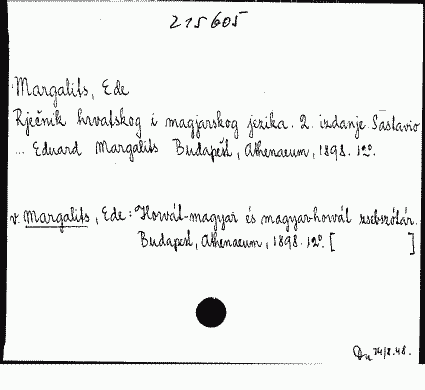 215605
Margalits, Ede
Rječnik hrvatskog i magjarskog jezika. 2. izdanje. Sastavio
... Eduard Margalits Budapest, Athenaeum, 1898. 12°.
v. Margalits, Ede: Horvát-magyar és magyar-horvát zsebszótár.
Budapest, Athenaeum, 1898. 12°. [ ]